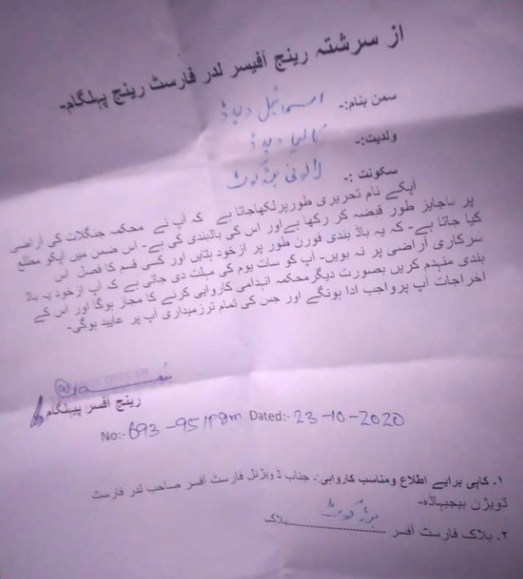 از سرشتہ رینج آفیسر لدر فارسٹ رینج پہلگام۔
سمن بنام:۔ اسماعیل دیدڈ
ولدیت:۔
سکونت :۔ لالونی
آپکے نام تحریری طورپرلکھاجاتا ہے کہ آپ نے محکمہ جنگلات کی اراضی
پر ناجایز طور قبضہ کر رکھا ہےاور اس کی باڈبندی کی ہے۔ اس ضمن میں آپکو مطلع
کیا جاتا ہے۔ کہ یہ باڈ بندی فورن طور پر ازخود ہٹایں اور کسی قسم کا فصل اس
سرکاری اراضی پر نہ بویں۔ آپ کو سات یوم کی مہلت دی جاتی ہے کہ آپ ازخود یہ باڈ
بندی منہدم کریں بصورت دیگرمحکمہ انہدامی کاروایی کرنے کا مجاز ہوگا اور اس کے
اخراجات آپ پرواجب ادا ہونگے اور جس کی تمام ترزمیداری آپ پر عاید ہوگی۔
رینج آفسر پہلگام
No:- 693-95/Pgm Dated:- 23-10-2020
۱. کاپی برایے اطلاع ومناسب کاروایی:. جناب ڈویژنل فارسٹ آفسر صاحب لدر فارسٹ
ڈویژن بیجبہاڈہ-
۲. بلاک فارست آفسر ..............................بلاک